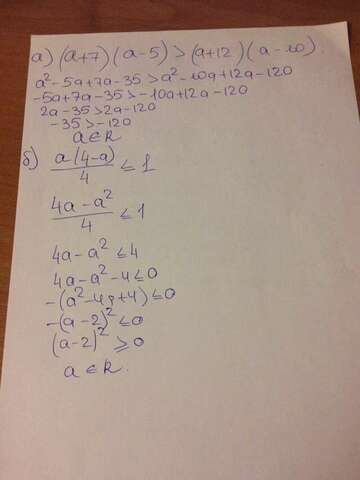 а) (a+7)(a-5)>(a+12)(a-10).
a²-5a+7a-35>a²-10a+12a-120
-5a+7a-35>-10a+12a-120
2a-35>2a-120
-35>-120
a∈R
б) a(4-a)/4 ≤ 1
4a-a²/4 ≤ 1
4a-a² ≤4
4a-a²-4≤0
-(a²-4a+4)≤0
-(a-2)² ≤0
(a-2)² ≥0
a∈R.